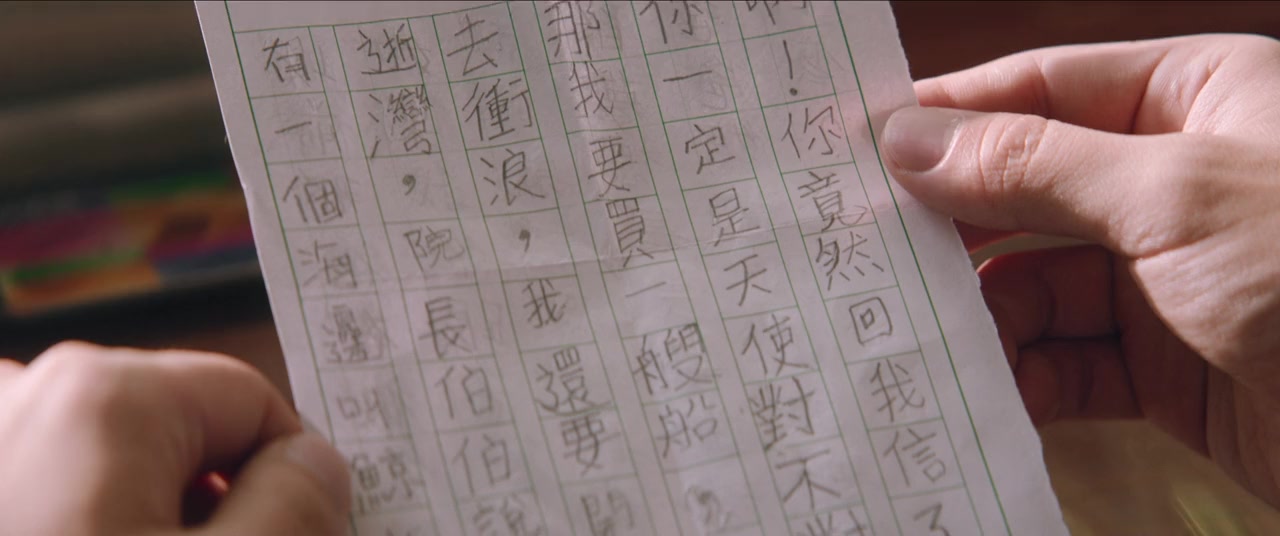 啊！你竟然回我信了
你一定是天使對不對
那我要買一艘船。
去衝浪，我還要開
逝灣，院長伯伯說
有一個海邊叫鯨